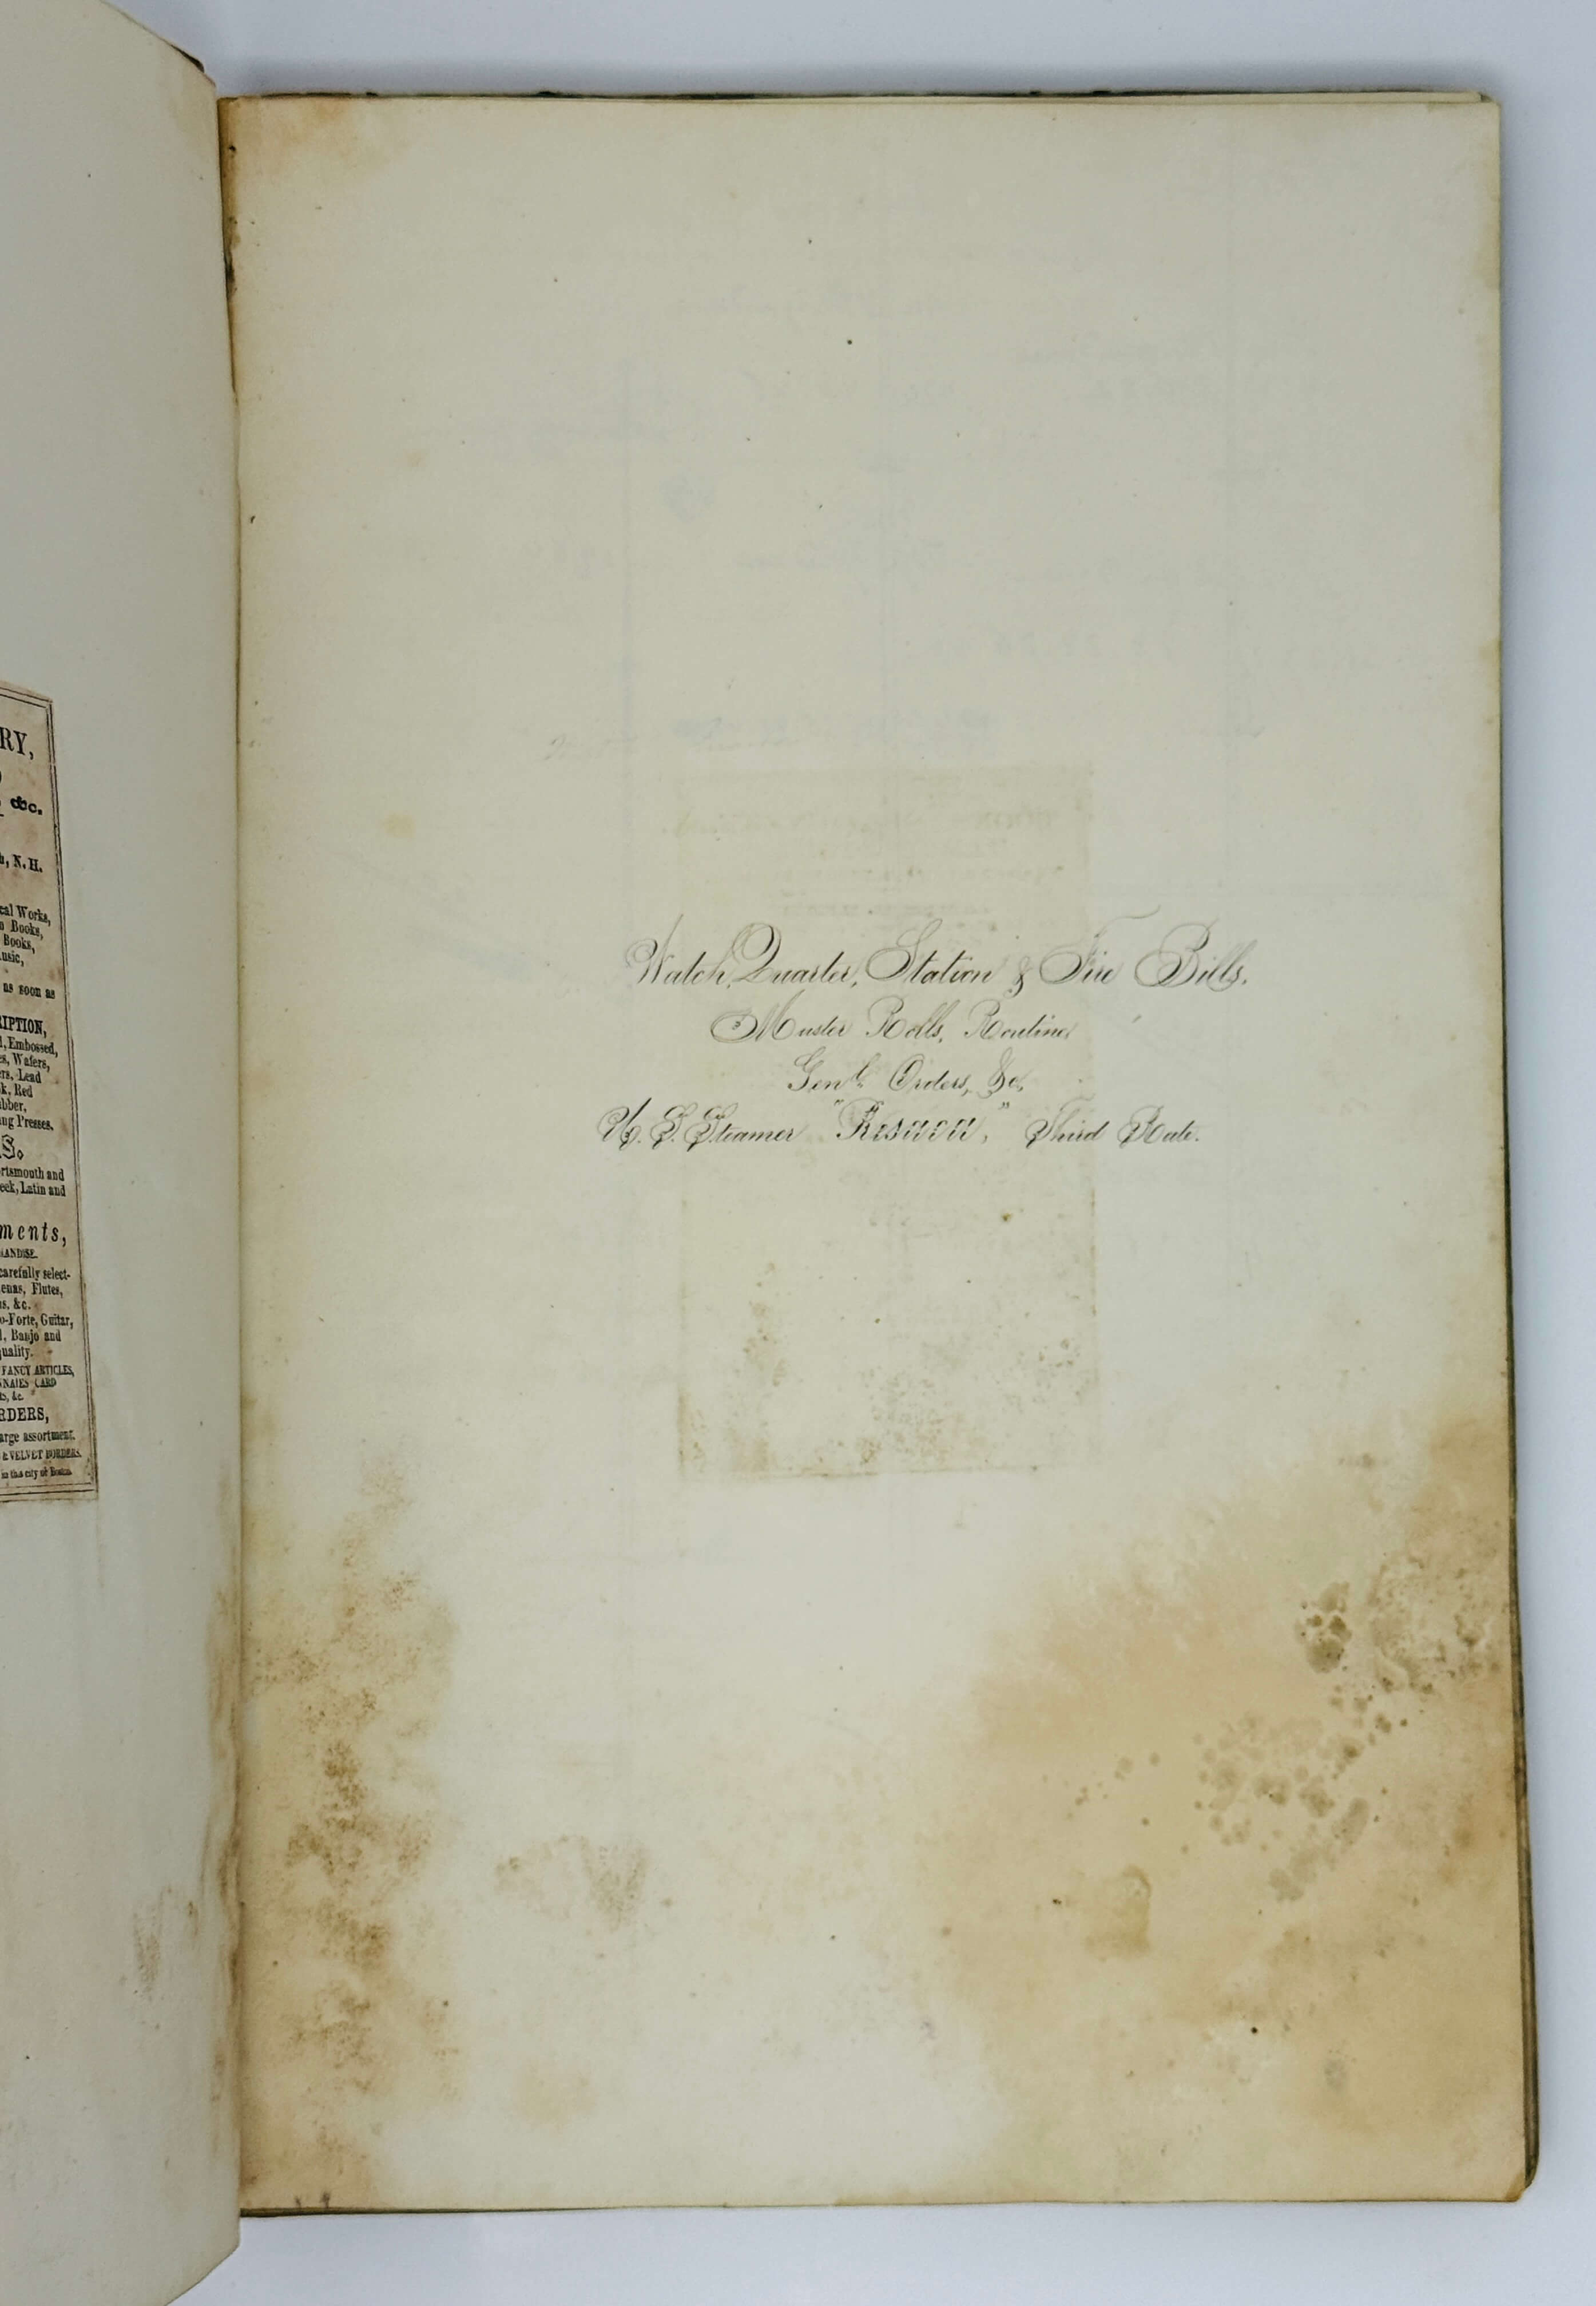 RY,
&c.
h, N.H.
cal Works,
n Books,
Books,
usic,
as soon as
RIPTION,
d, Embossed,
es, Wafers,
ers, Lead
k, Red
ubber,
ing Presses.
S.
rtsmouth and
eek, Latin and
ments,
ANDISE.
carefully select-
enas, Flutes,
s, &c.
o-Forte, Guitar,
l, Banjo and
quality.
FANCY ARTICLES,
NNAIES CARD
S, &c.
RDERS,
arge assortment.
& VELVET BORDERS.
in the city of Boston.
Watch, Quarter, Station & Fire Bills.
Muster Rolls, Routine
Genl. Orders, &c,
U. S. Steamer "Resaca," Third Rate.